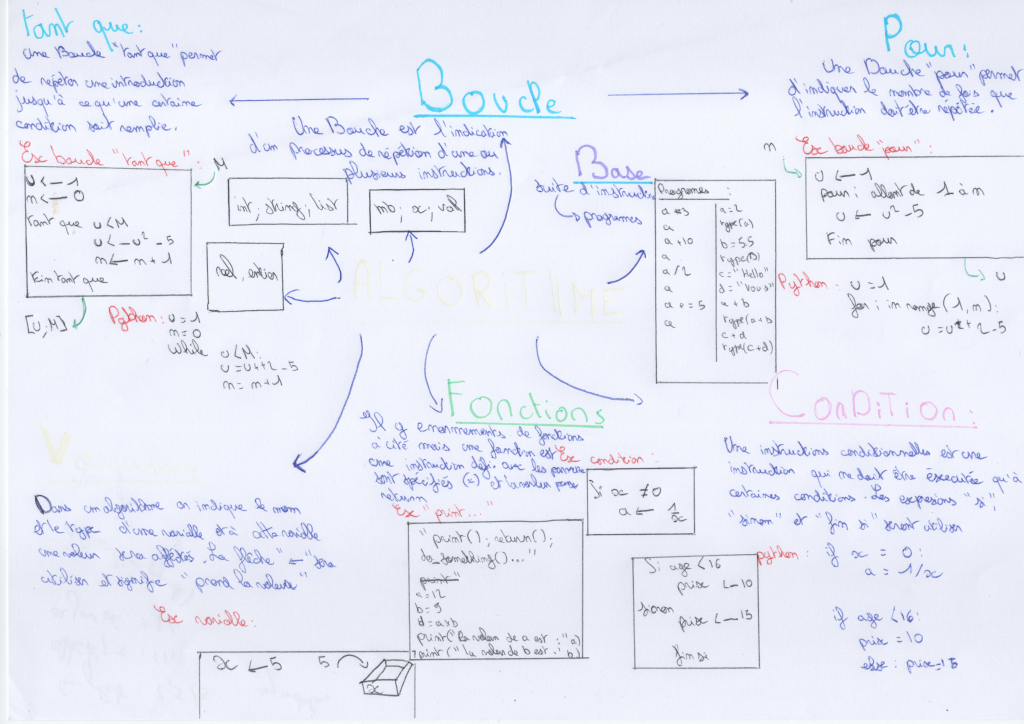 Tant que:
Une Boucle "tant que" permet
de répéter une introduction
jusqu'à ce qu'une certaine
condition soit remplie.
Ex boucle "tant que":
M
U ← 1
n ← 0
Tant que U < M
U ← U² - 5
n ← n + 1
Fin tant que
[U, M]
Python: U = 1
n = 0
While U < M:
U = U**2 - 5
n = n + 1
Boucle
Une Boucle est l'indication
d'un processus de répétion d'une ou
plusieurs instructions.
int; string; list
mb; x; val
ALGORITIME
Base
suite d'instruction
programes
Programes :
a = 3
a
a + 10
a
a / 2
a
a += 5
a
a = 2
type(a)
b = 5.5
type(B)
c = "Hello"
d = "You s"
a + b
type(a+b
c + d
type(c+d)
Pour:
Une Boucle "pour" permet
d'indiquer le nombre de fois que
l'instruction doit être répétée.
Ex boucle "pour":
n
U ← 1
pour i allant de 1 à n
U ← U² - 5
Fin pour
U
Python: U = 1
for i in range(1, n):
U = U**2 - 5
V
Dans un algorithme on indique le nom
et le type d'une variable et à cette variable
une valeur sera affectés. La flèche "←" sera
utiliser et signifie "prend la valeur"
Ex variable:
x ← 5
5
x
Fonctions
Il y énormements de fonctions
a cité mais une fonction est
une instruction défi. avec les
sont spécifiés (x) et la valeur
return
Ex "print..."
"print(); return();
do_something()..."
print"
a = 12
b = 9
d = a x b
print("La valeur de a est :" a)
print("la valeur de b est :" b)
Ex condition:
Si x ≠ 0
a ← 1/x
Si age < 16
prix ← 10
sinon
prix ← 15
fin si
ConDiTion:
Une instructions conditionnelles est une
instruction qui ne doit être éxecutée qu'à
certaines conditions. Les expresions "si",
"sinon" et "fin si" seront utiliser
python: if x = 0:
a = 1/x
if age < 16:
prix = 10
else: prix = 15